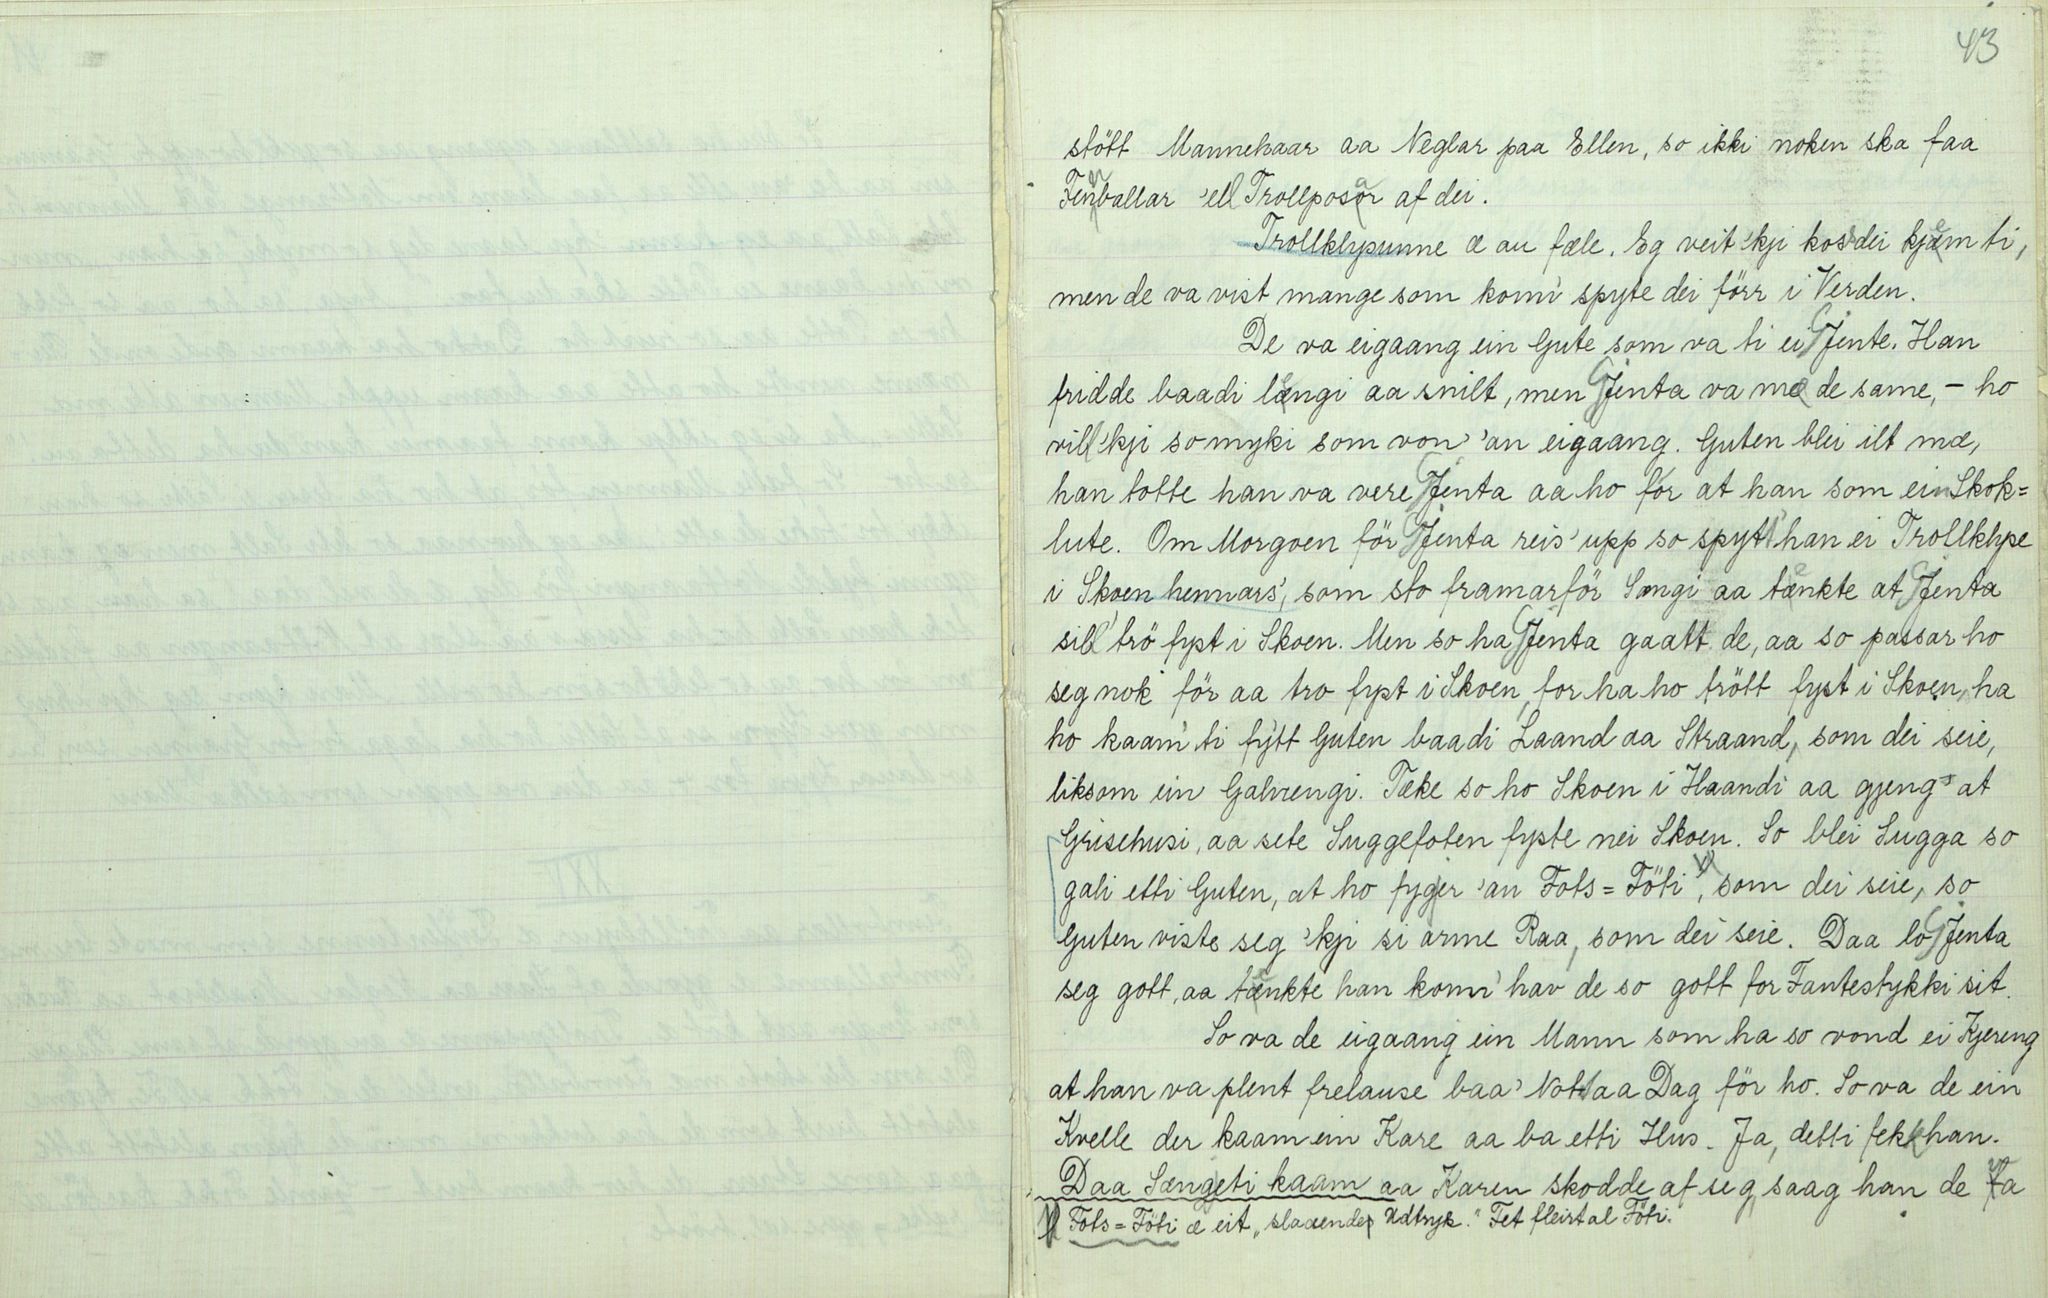 43
stött Mannehaar aa Neglar paa Ellen, so ikki noken ska faa
Finballar 'ell Trollposar af dei.
Trollklypunne æ au fæle. Eg veit 'kji kos dei kjæm ti,
men de va vist mange som komi' spyte dei förr i Verden.
De va eigaang ein Gute som va ti ei Gjente. Han
fridde baadi længi aa snilt, men Gjenta va mæ de same, – ho
vill 'kji so myki som von' 'an eigaang. Guten blei ilt mæ,
han totte han va vere Gjenta aa ho for at han som ein Skok=
lute. Om Morgoen för Gjenta reis' upp so spytt' han ei Trollklype
i Skoen hennars', som sto framarför Sængi aa tænkte at Gjenta
sill' trö fyst i Skoen. Men so ha Gjenta gaatt de, aa so passar ho
seg nok för aa tro fyst i Skoen, for ha ho trött fyst i Skoen, ha
ho kaam' ti fytt Guten baadi Laand aa Straand, som dei seie,
liksom ein Galnengi. Tæke so ho Skoen i Haandi aa gjeng at
Grisehusi, aa sete Suggefoten fyste nei Skoen. So blei Sugga so
gali etti Guten, at ho fygjer 'an Fots=Föti 1), som dei seie, so
Guten viste seg 'kji si arme Raa, som dei seie. Daa lo Gjenta
seg gott, aa tænkte han komi' hav de so gott for Fantestykki sit.
So va de eigaang ein Mann som ha so vond ei Kjereng
at han va plent frelause baa' Nott aa Dag för ho. So va de ein
Kvelle der kaam ein Kare aa ba etti Hus. Ja, detti fekk han.
Daa Sængeti kaam aa Karen skodde af seg, saag han de va
1) Fots=Föti æ eit „slaaende Udtryk." Fet fleirtal Föti.